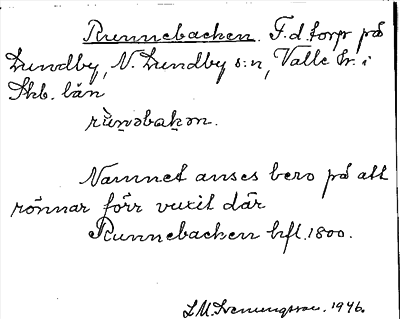 Runnebacken. F.d. torp på
Lundby, N. Lundby s:n, Valle hr. i
Skb. län
rùnəbakən.
Namnet anses bero på att
rönnar förr vuxit där
Runnebacken hfl. 1800.
L. M. Svenungsson. 1946.